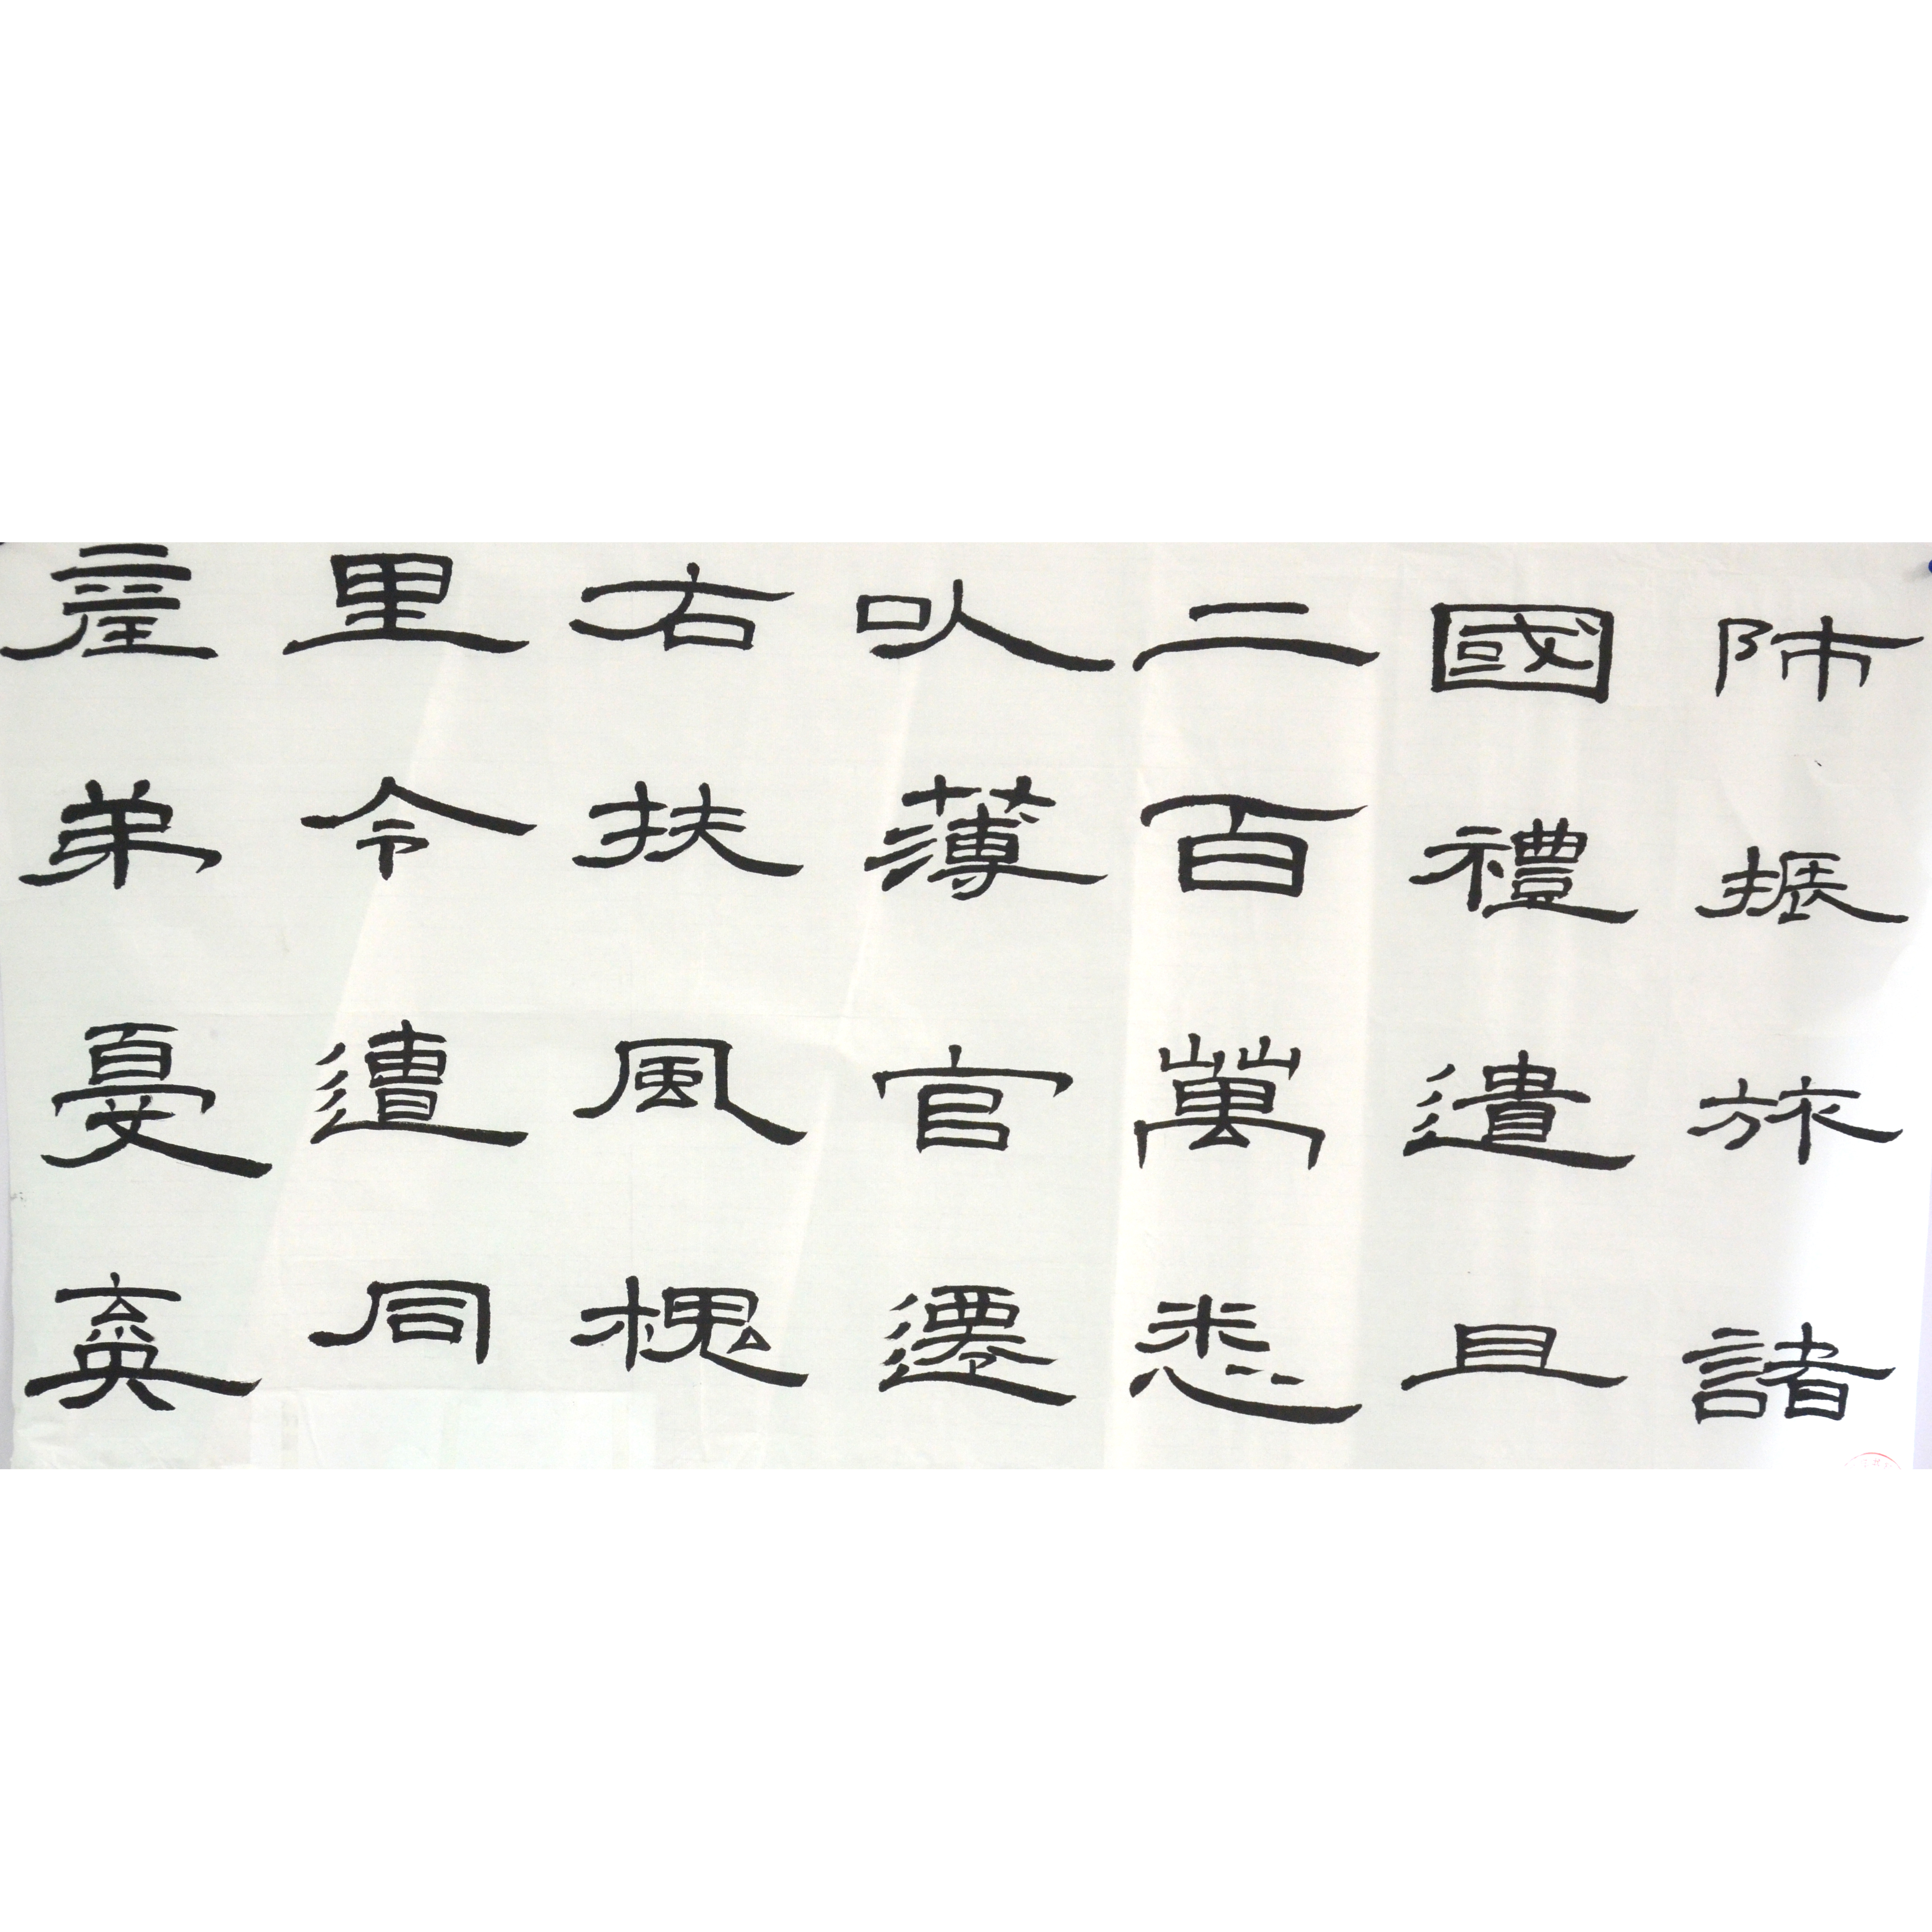 師振旅諸
國禮遺且
二百萬悉
以薄官遷
右扶風槐
里令遭同
產弟憂棄